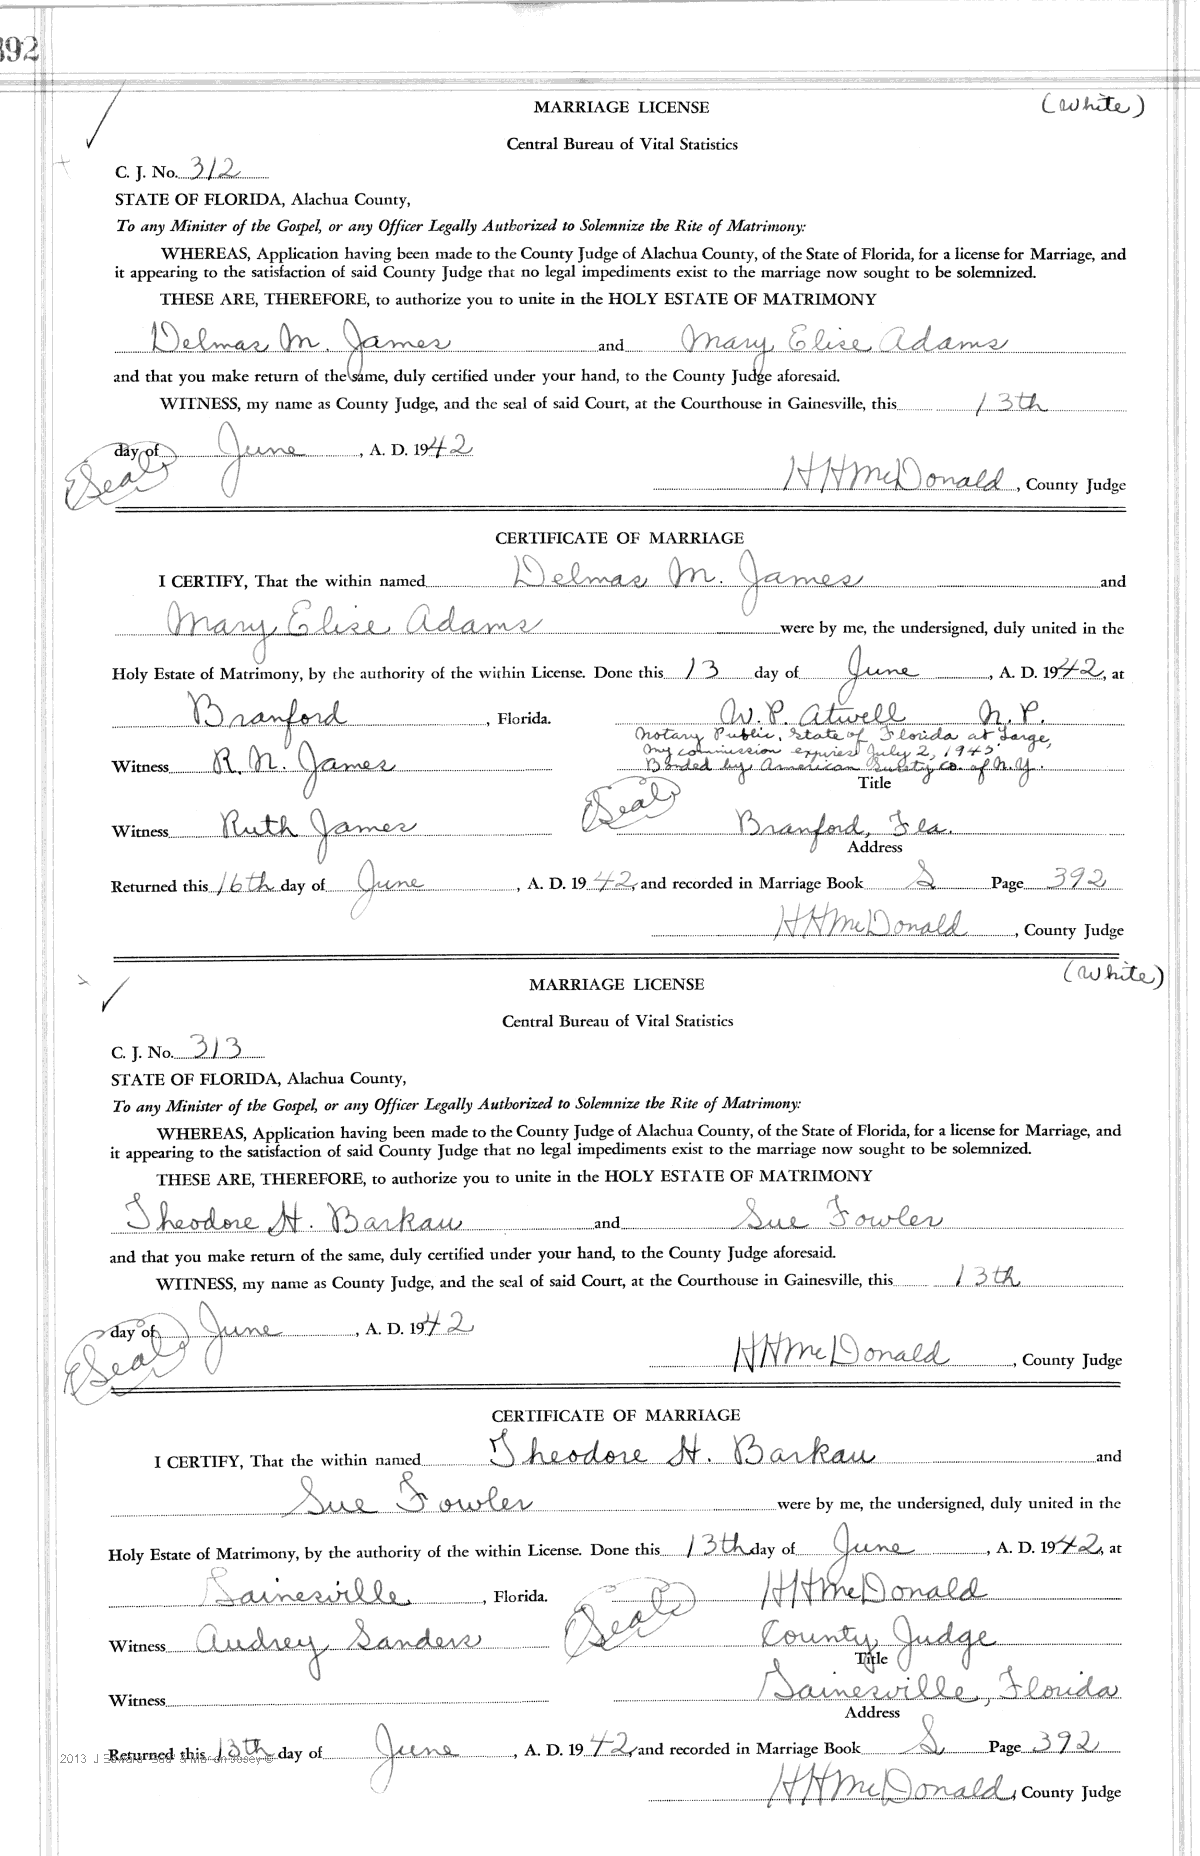 392
MARRIAGE LICENSE (White)
Central Bureau of Vital Statistics
C. J. No. 312
STATE OF FLORIDA, Alachua County,
To any Minister of the Gospel, or any Officer Legally Authorized to Solemnize the Rite of Matrimony:
WHEREAS, Application having been made to the County Judge of Alachua County, of the State of Florida, for a license for Marriage, and
it appearing to the satisfaction of said County Judge that no legal impediments exist to the marriage now sought to be solemnized.
THESE ARE, THEREFORE, to authorize you to unite in the HOLY ESTATE OF MATRIMONY
Delmas M. James and Mary Elise Adams
and that you make return of the same, duly certified under your hand, to the County Judge aforesaid.
WITNESS, my name as County Judge, and the seal of said Court, at the Courthouse in Gainesville, this 13th
day of June, A. D. 1942
(Seal) HHMcDonald, County Judge
CERTIFICATE OF MARRIAGE
I CERTIFY, That the within named Delmas M. James and
Mary Elise Adams were by me, the undersigned, duly united in the
Holy Estate of Matrimony, by the authority of the within License. Done this 13 day of June, A. D. 1942, at
Branford, Florida. W. P. Atwell N. P.
Notary Public, State of Florida at Large,
My commission expires July 2, 1945.
Witness R. N. James Bonded by American Surety Co. of N.Y.
Title
(Seal)
Witness Ruth James Branford, Fla.
Address
Returned this 16th day of June, A. D. 1942, and recorded in Marriage Book S Page 392
HHMcDonald, County Judge
MARRIAGE LICENSE (White)
Central Bureau of Vital Statistics
C. J. No. 313
STATE OF FLORIDA, Alachua County,
To any Minister of the Gospel, or any Officer Legally Authorized to Solemnize the Rite of Matrimony:
WHEREAS, Application having been made to the County Judge of Alachua County, of the State of Florida, for a license for Marriage, and
it appearing to the satisfaction of said County Judge that no legal impediments exist to the marriage now sought to be solemnized.
THESE ARE, THEREFORE, to authorize you to unite in the HOLY ESTATE OF MATRIMONY
Theodore H. Barkau and Sue Fowler
and that you make return of the same, duly certified under your hand, to the County Judge aforesaid.
WITNESS, my name as County Judge, and the seal of said Court, at the Courthouse in Gainesville, this 13th
day of June, A. D. 1942
(Seal) HHMcDonald, County Judge
CERTIFICATE OF MARRIAGE
I CERTIFY, That the within named Theodore H. Barkau and
Sue Fowler were by me, the undersigned, duly united in the
Holy Estate of Matrimony, by the authority of the within License. Done this 13th day of June, A. D. 1942, at
Gainesville, Florida. (Seal) HHMcDonald
Witness Audrey Sanders County Judge
Title
Witness Gainesville, Florida
Address
Returned this 13th day of June, A. D. 1942, and recorded in Marriage Book S Page 392
2013 J
HHMcDonald, County Judge